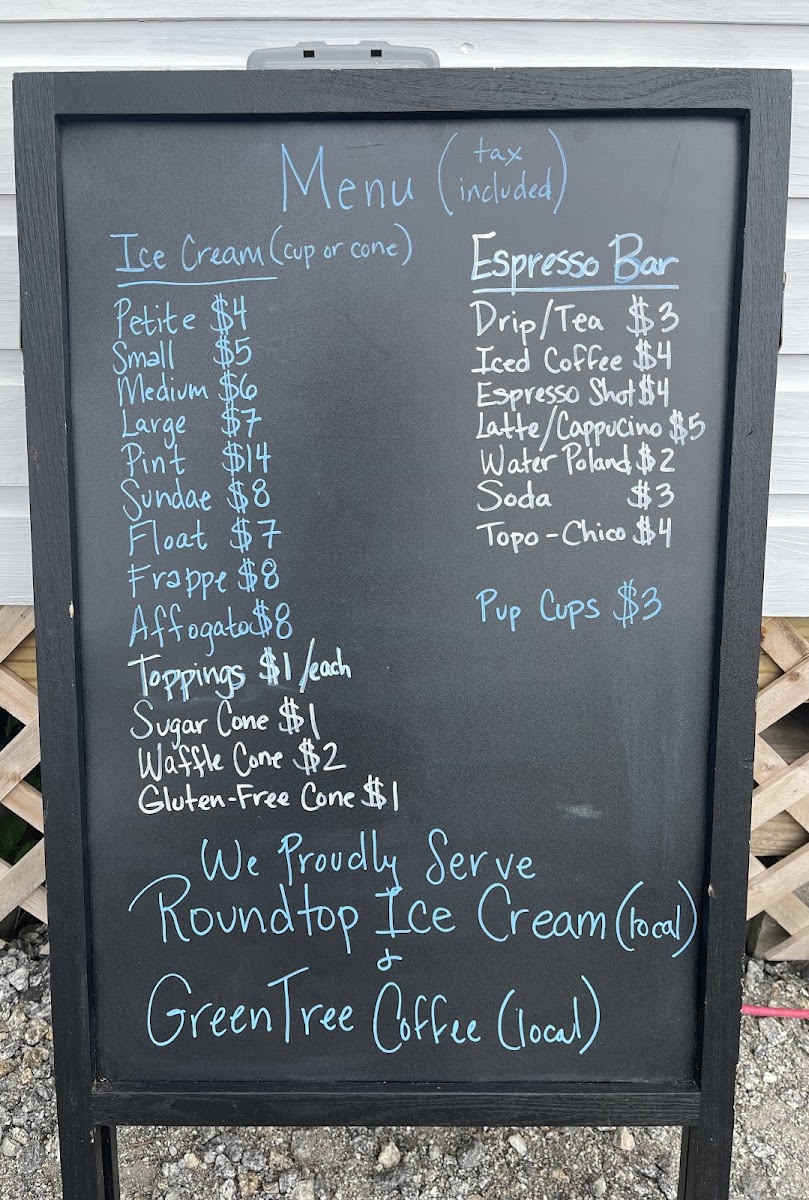 Menu (tax included)
Ice Cream (cup or cone)
Petite $4
Small $5
Medium $6
Large $7
Pint $14
Sundae $8
Float $7
Frappe $8
Affogato $8
Toppings $1/each
Sugar Cone $1
Waffle Cone $2
Gluten-Free Cone $1
Espresso Bar
Drip/Tea $3
Iced Coffee $4
Espresso Shot $4
Latte/Cappucino $5
Water Poland $2
Soda $3
Topo-Chico $4
Pup Cups $3
We Proudly Serve
Roundtop Ice Cream (local)
&
GreenTree Coffee (local)